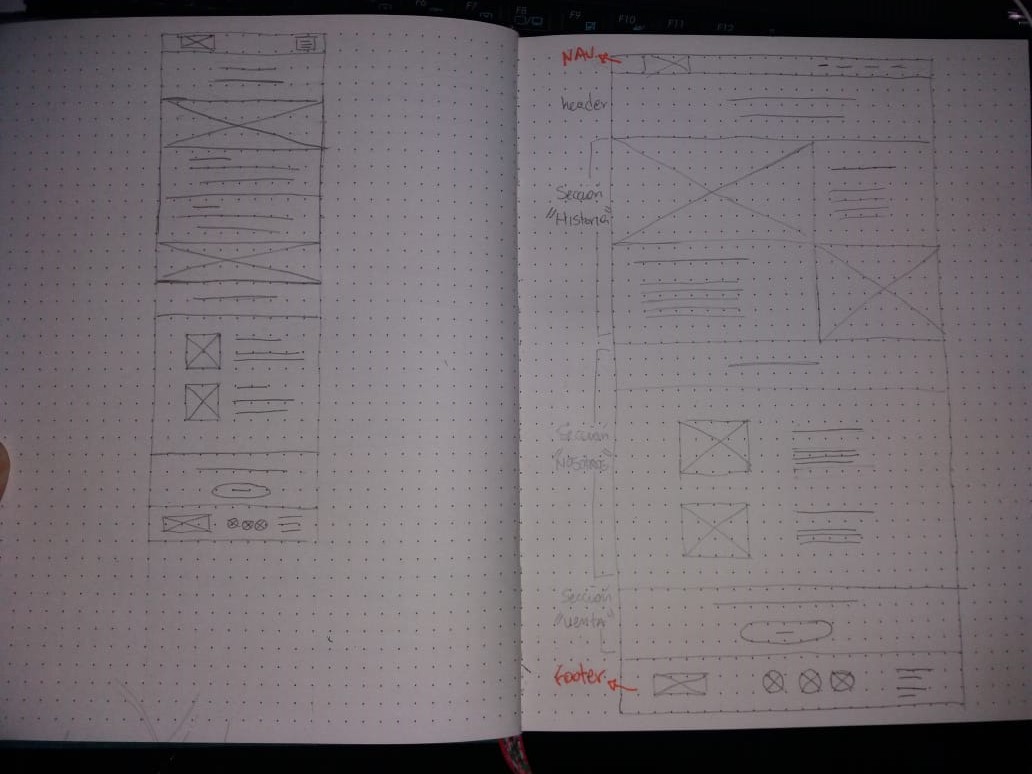 F6
F7
F8
F9
F10
F11
F12
NAV
header
Sección
"Historia"
Sección
"Nosotros"
Sección
"Venta"
Footer